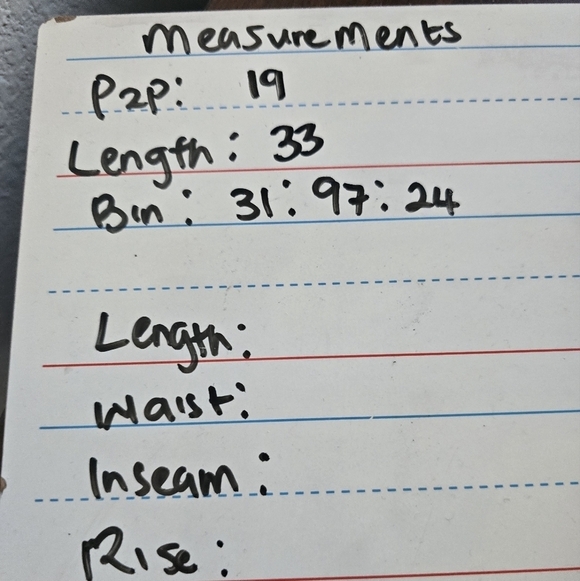 Measurements
P2P: 19
Length: 33
Bin: 31:97:24
Length:
Waist:
Inseam:
Rise: